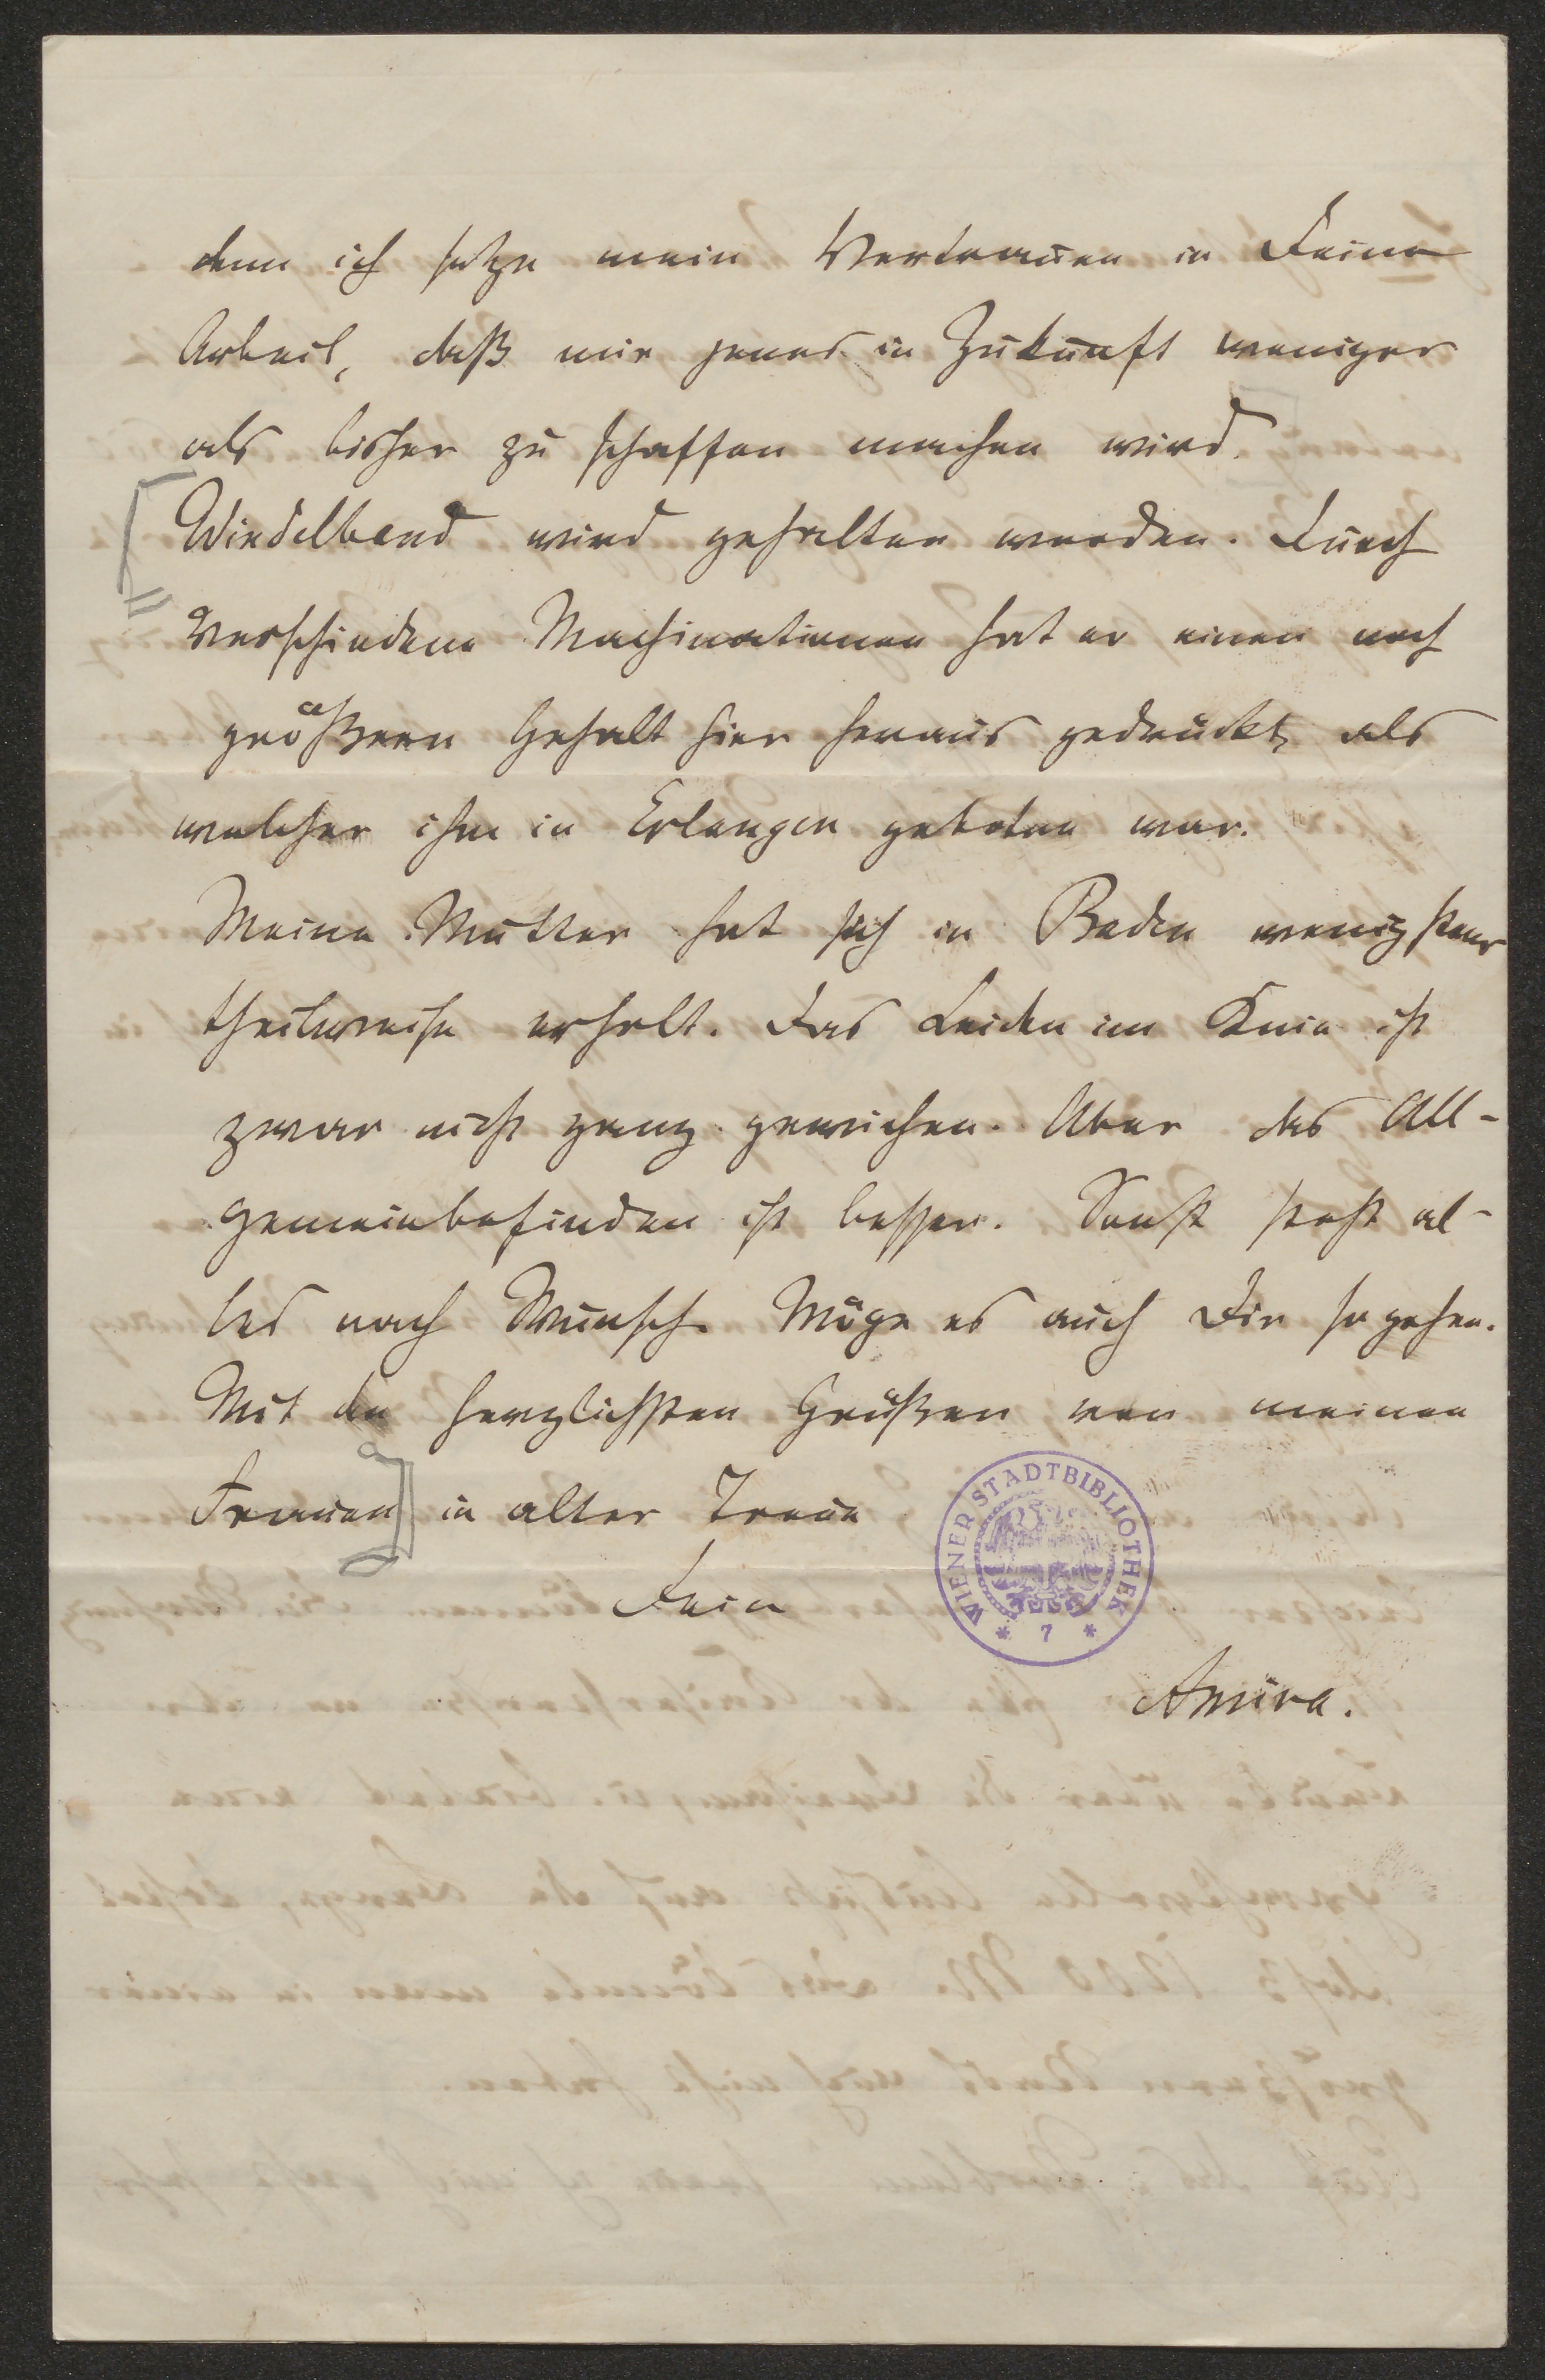 denn ich setze mein Vertrauen in Deine
Arbeit, daß mir jenes in Zukunft weniger
als bisher zu schaffen machen wird.
Windelband wird gehalten werden. Durch
verschiedene Machinationen hat er einen noch
größeren Gehalt hier heraus gedrückt, als
welcher ihm in Erlangen geboten war.
Meine Mutter hat sich in Baden wenigstens
theilweise erholt. Das Leiden im Knie ist
zwar nicht ganz gewichen. Aber das All-
gemeinbefinden ist besser. Sonst steht al-
les nach Wunsch. Möge es auch Dir so gehen.
Mit den herzlichsten Grüßen von meinen
Frauen in alter Treue
Dein
WIENER STADTBIBLIOTHEK
* 7 *
Amira.